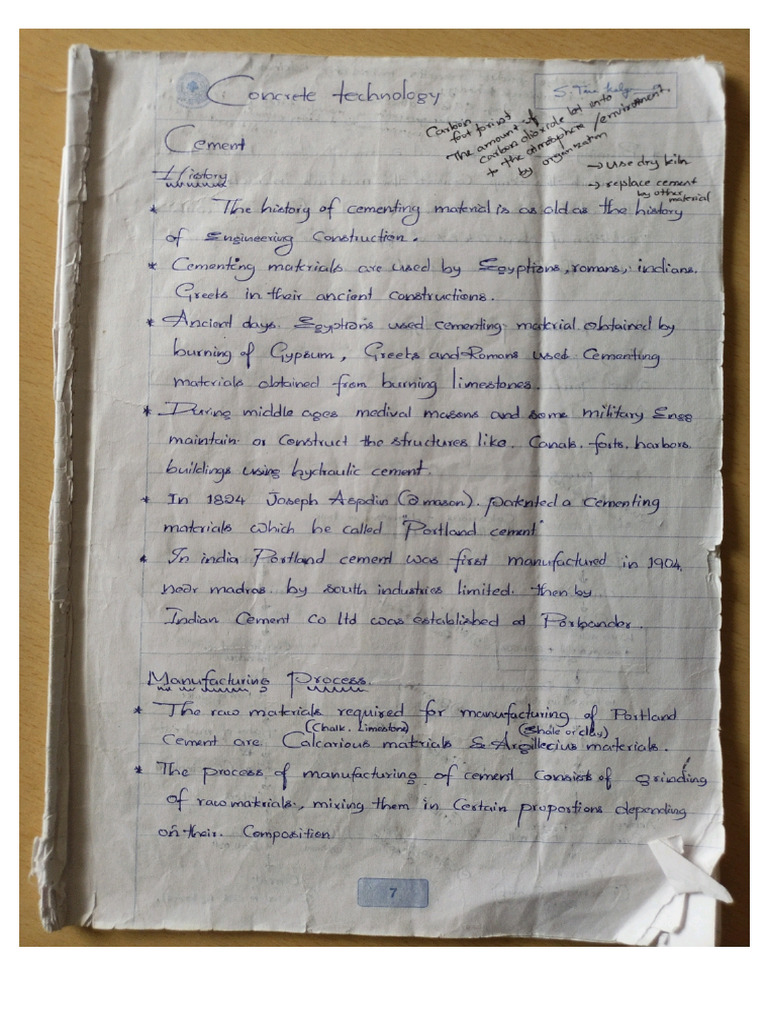 Concrete technology
Carbon
foot print
The amount of
carbon dioxide let into
to the atmosphere /environment.
by organization
→ use dry kiln
→ replace cement
by other
material
Cement
History
* The history of cementing material is as old as the history
of Engineering Construction.
* Cementing materials are used by Egyptions, romans, indians.
Greeks in their ancient constructions.
* Ancient days. Egyptions used cementing material obtained by
burning of Gypsum, Greeks and Romans used Cementing
materials obtained from burning limestones.
* During middle ages medival masons and some military Engg
maintain or Construct the structures like. Canals. forts. harbors
buildings using hydraulic cement.
* In 1824 Joseph Aspdin (a mason). patented a cementing
materials which he called "Portland cement"
* In india Portland cement was first manufactured in 1904.
near madras. by south industries limited. then by
Indian Cement Co ltd was established at Porbander.
Manufacturing Process.
* The raw materials required for manufacturing of Portland
(Chalk. Limestone) (Shale or clay)
Cement are Calcarious materials & Argillecius materials.
* The process of manufacturing of cement Consists of grinding
of raw materials, mixing them in Certain proportions depending
on their. Composition
7